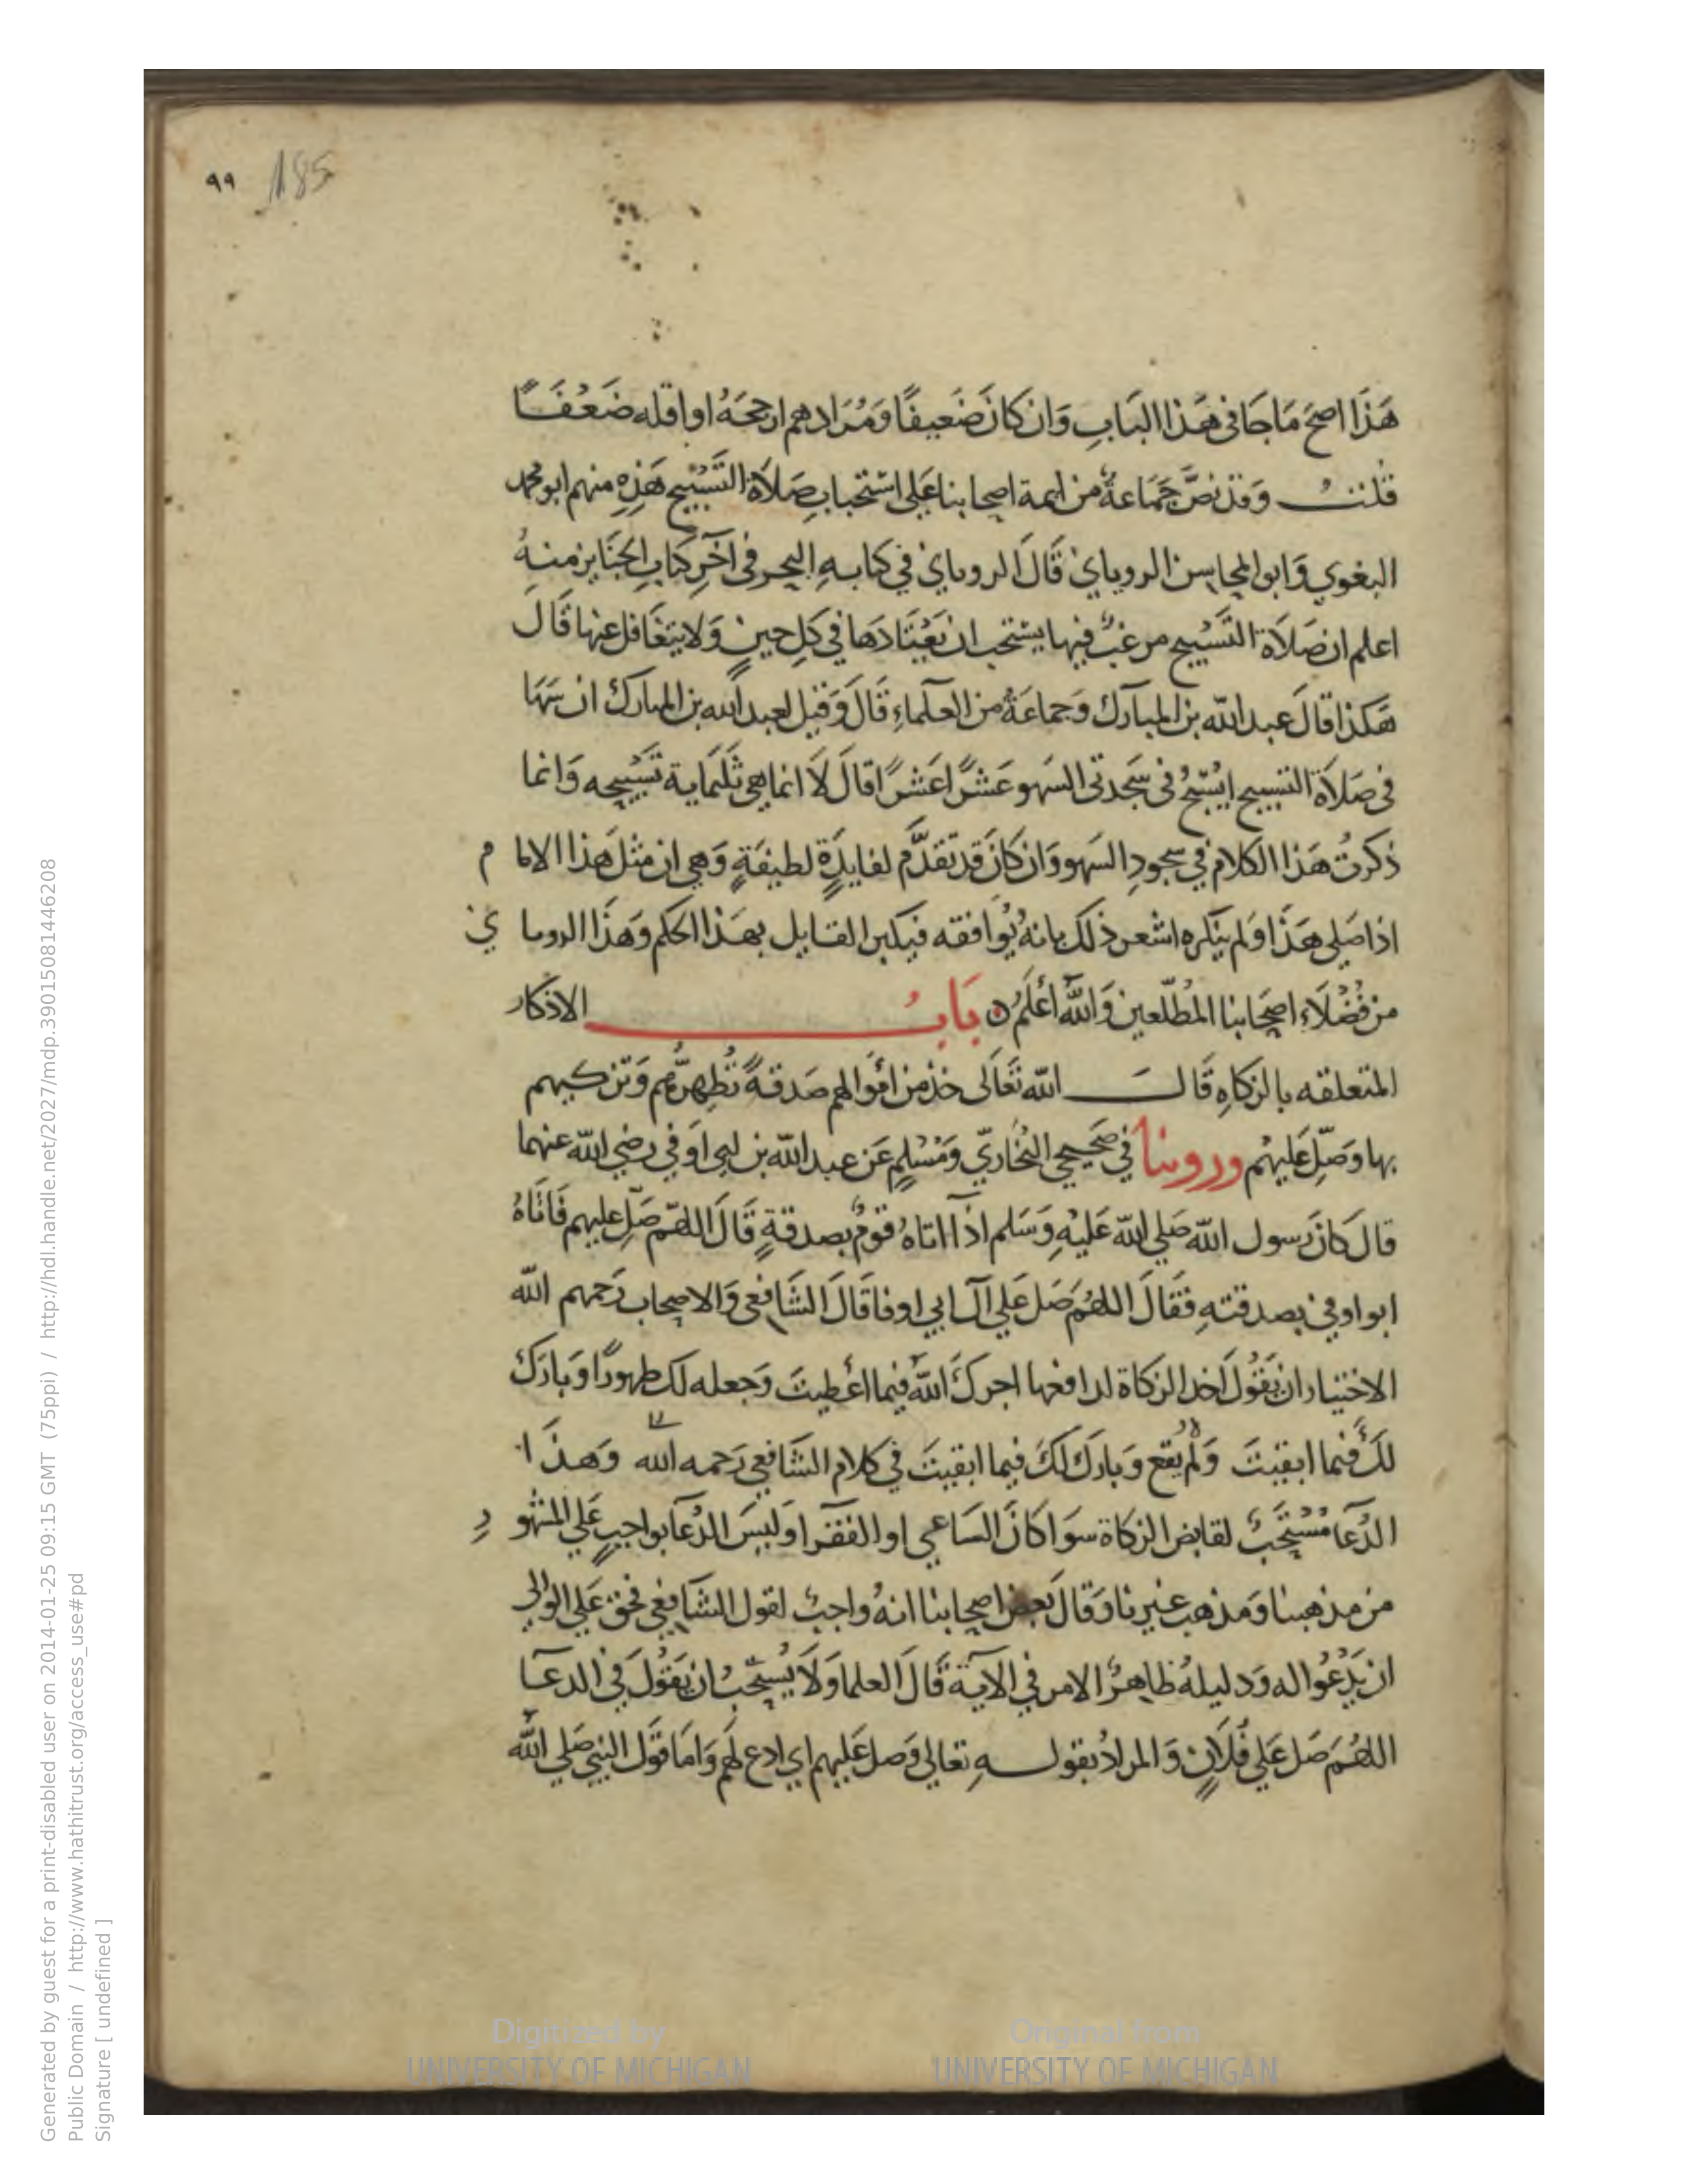 ٩٩ 185
هَذَا اصح مَا جَا فى هَذا البَابِ وَان كانَ ضَعيفًا وَمُرَادهم ارجحَهُ او اقله ضَعْفًا
قلت وَقد نصَّ جَمَاعةٌ من ايمة اصحابنا عَلى استحباب صَلاَة التَّسْبيح هَذِهِ منهم ابو محمد
البغوي وَابو المحاسن الروياني قَالَ الروياني في كتابهِ البحر فى آخر كتابِ الجنَايز منهُ
اعلم ان صَلاَة التَّسْبيح مرغبٌ فيها يستحب ان يَعْتَادَهَا في كل حينٍ وَلا يتغَافل عنها قَالَ
هَكذا قالَ عبد الله بن المبارك وَجماعَةٌ من العلماءِ قَالَ وَقيل لعبد الله بن المبارك ان سَهَا
فى صَلاَة التسبيح ايُسَبّحُ فى سَجدتى السَهو عَشْرًا عَشْرًا قالَ لاَ انما هي ثلثماية تَسْبيحه وَانما
ذكرتُ هَذا الكلام في سجودِ السَهو وَان كانَ قد تقدَّم لفايدَةٍ لطيفَةٍ وَهي ان مثل هَذا الامام
اذا صَلى هَذَا وَلم ينكره اشعر ذلك بانهُ يُوَافقه فيكبر القايل بهَذا الحكم وَهَذَا الروياني
من فُضْلَاءِ اصحَابنا المُطَّلعين وَاللهُ أعْلَمُ ه بَابُ الاذكار
المتعلقه بالزكاهِ قَالَ الله تَعَالَى خذ من اموَالهم صَدقةً تُطِهرُّهُم وَتزكيهم
بها وَصَلِّ عَليْهم وروينا في صَحيحي البُخَاريّ وَمُسْلم عَن عبد الله بن ابى اوَفي رضي الله عنهما
قال كانَ رَسول الله صَلي الله عَليْهِ وَسَلم اذَا اتاهُ قومٌ بصدقةٍ قَالَ اللهّم صَلِّ عليهم فَاتَاهُ
ابو اوفي بصدقتهِ فَقَالَ اللهُمَ صَل عَلي آلَ ابي اوفا قَالَ الشَافعى وَالاصحاب رَحمهم الله
الاختيار ان يَقُولَ اخذ الزكاة لدافعها اجركَ اللهُ فيما اعْطيتَ وَجعله لك طهورًا وَبارَكَ
لكَ فيما ابقيتَ وَلم يقع وَبارَك لكَ فيما ابقيتَ في كلام الشَافعي رَحمه الله وَهذَا
الدُعَا مُسْتحَبٌ لقابض الزكاة سوَا كانَ السَاعي او الفقرا وَليسَ الدُعَا بواجبٍ عَلي المشهور
من مذهبنا وَمذهب غيرنا وَقالَ بعض اصحابنا انهُ واجبٌ لقول الشافعي فحق عَلي الوالي
ان يَدْعُوا له وَدليلهُ ظاهِرُ الامر في الاية قَالَ العلما وَلاَ يُستحَبُ ان يَقوُلَ في الدعا
اللهُمَ صَل عَلي فُلَانٍ وَالمرادُ بقولهِ تعالى وَصل عَليهم اي ادع لهم وَامَا قَول النبي صَلي الله
Generated by guest for a print-disabled user on 2014-01-25 09:15 GMT (75ppi) / http://hdl.handle.net/2027/mdp.39015081446208
Public Domain / http://www.hathitrust.org/access_use#pd
Signature [ undefined ]
Digitized by
UNIVERSITY OF MICHIGAN
Original from
UNIVERSITY OF MICHIGAN